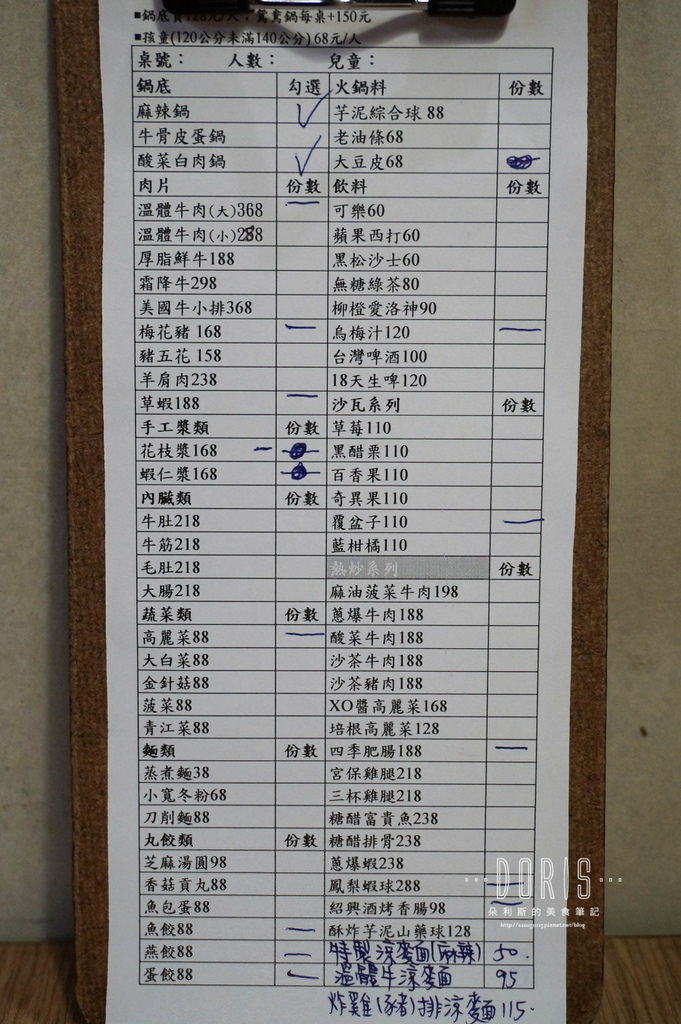 ■鍋底費128元/人；鴛鴦鍋每桌+150元
■孩童(120公分未滿140公分)68元/人
桌號： 人數： 兒童：
鍋底 勾選 火鍋料 份數
麻辣鍋 芋泥綜合球 88
牛骨皮蛋鍋 老油條68
酸菜白肉鍋 大豆皮68
肉片 份數 飲料 份數
溫體牛肉(大)368 可樂60
溫體牛肉(小)288 蘋果西打60
厚脂鮮牛188 黑松沙士60
霜降牛298 無糖綠茶80
美國牛小排368 柳橙愛洛神90
梅花豬 168 烏梅汁120
豬五花 158 台灣啤酒100
羊肩肉238 18天生啤120
草蝦188 沙瓦系列 份數
手工漿類 份數 草莓110
花枝漿168 黑醋栗110
蝦仁漿168 百香果110
內臟類 份數 奇異果110
牛肚218 覆盆子110
牛筋218 藍柑橘110
毛肚218 熱炒系列 份數
大腸218 麻油菠菜牛肉198
蔬菜類 份數 蔥爆牛肉188
高麗菜88 酸菜牛肉188
大白菜88 沙茶牛肉188
金針菇88 沙茶豬肉188
菠菜88 XO醬高麗菜168
青江菜88 培根高麗菜128
麵類 份數 四季肥腸188
蒸煮麵38 宮保雞腿218
小寬冬粉68 三杯雞腿218
刀削麵88 糖醋富貴魚238
丸餃類 份數 糖醋排骨238
芝麻湯圓98 蔥爆蝦238
香菇貢丸88 鳳梨蝦球288
魚包蛋88 紹興酒烤香腸98
魚餃88 酥炸芋泥山藥球128
燕餃88 特製涼麥面(麻辣) 50.
蛋餃88 溫體牛涼麥面 95
炸雞(豬)排涼麥面 115.
DORIS
朵利斯的美食筆記